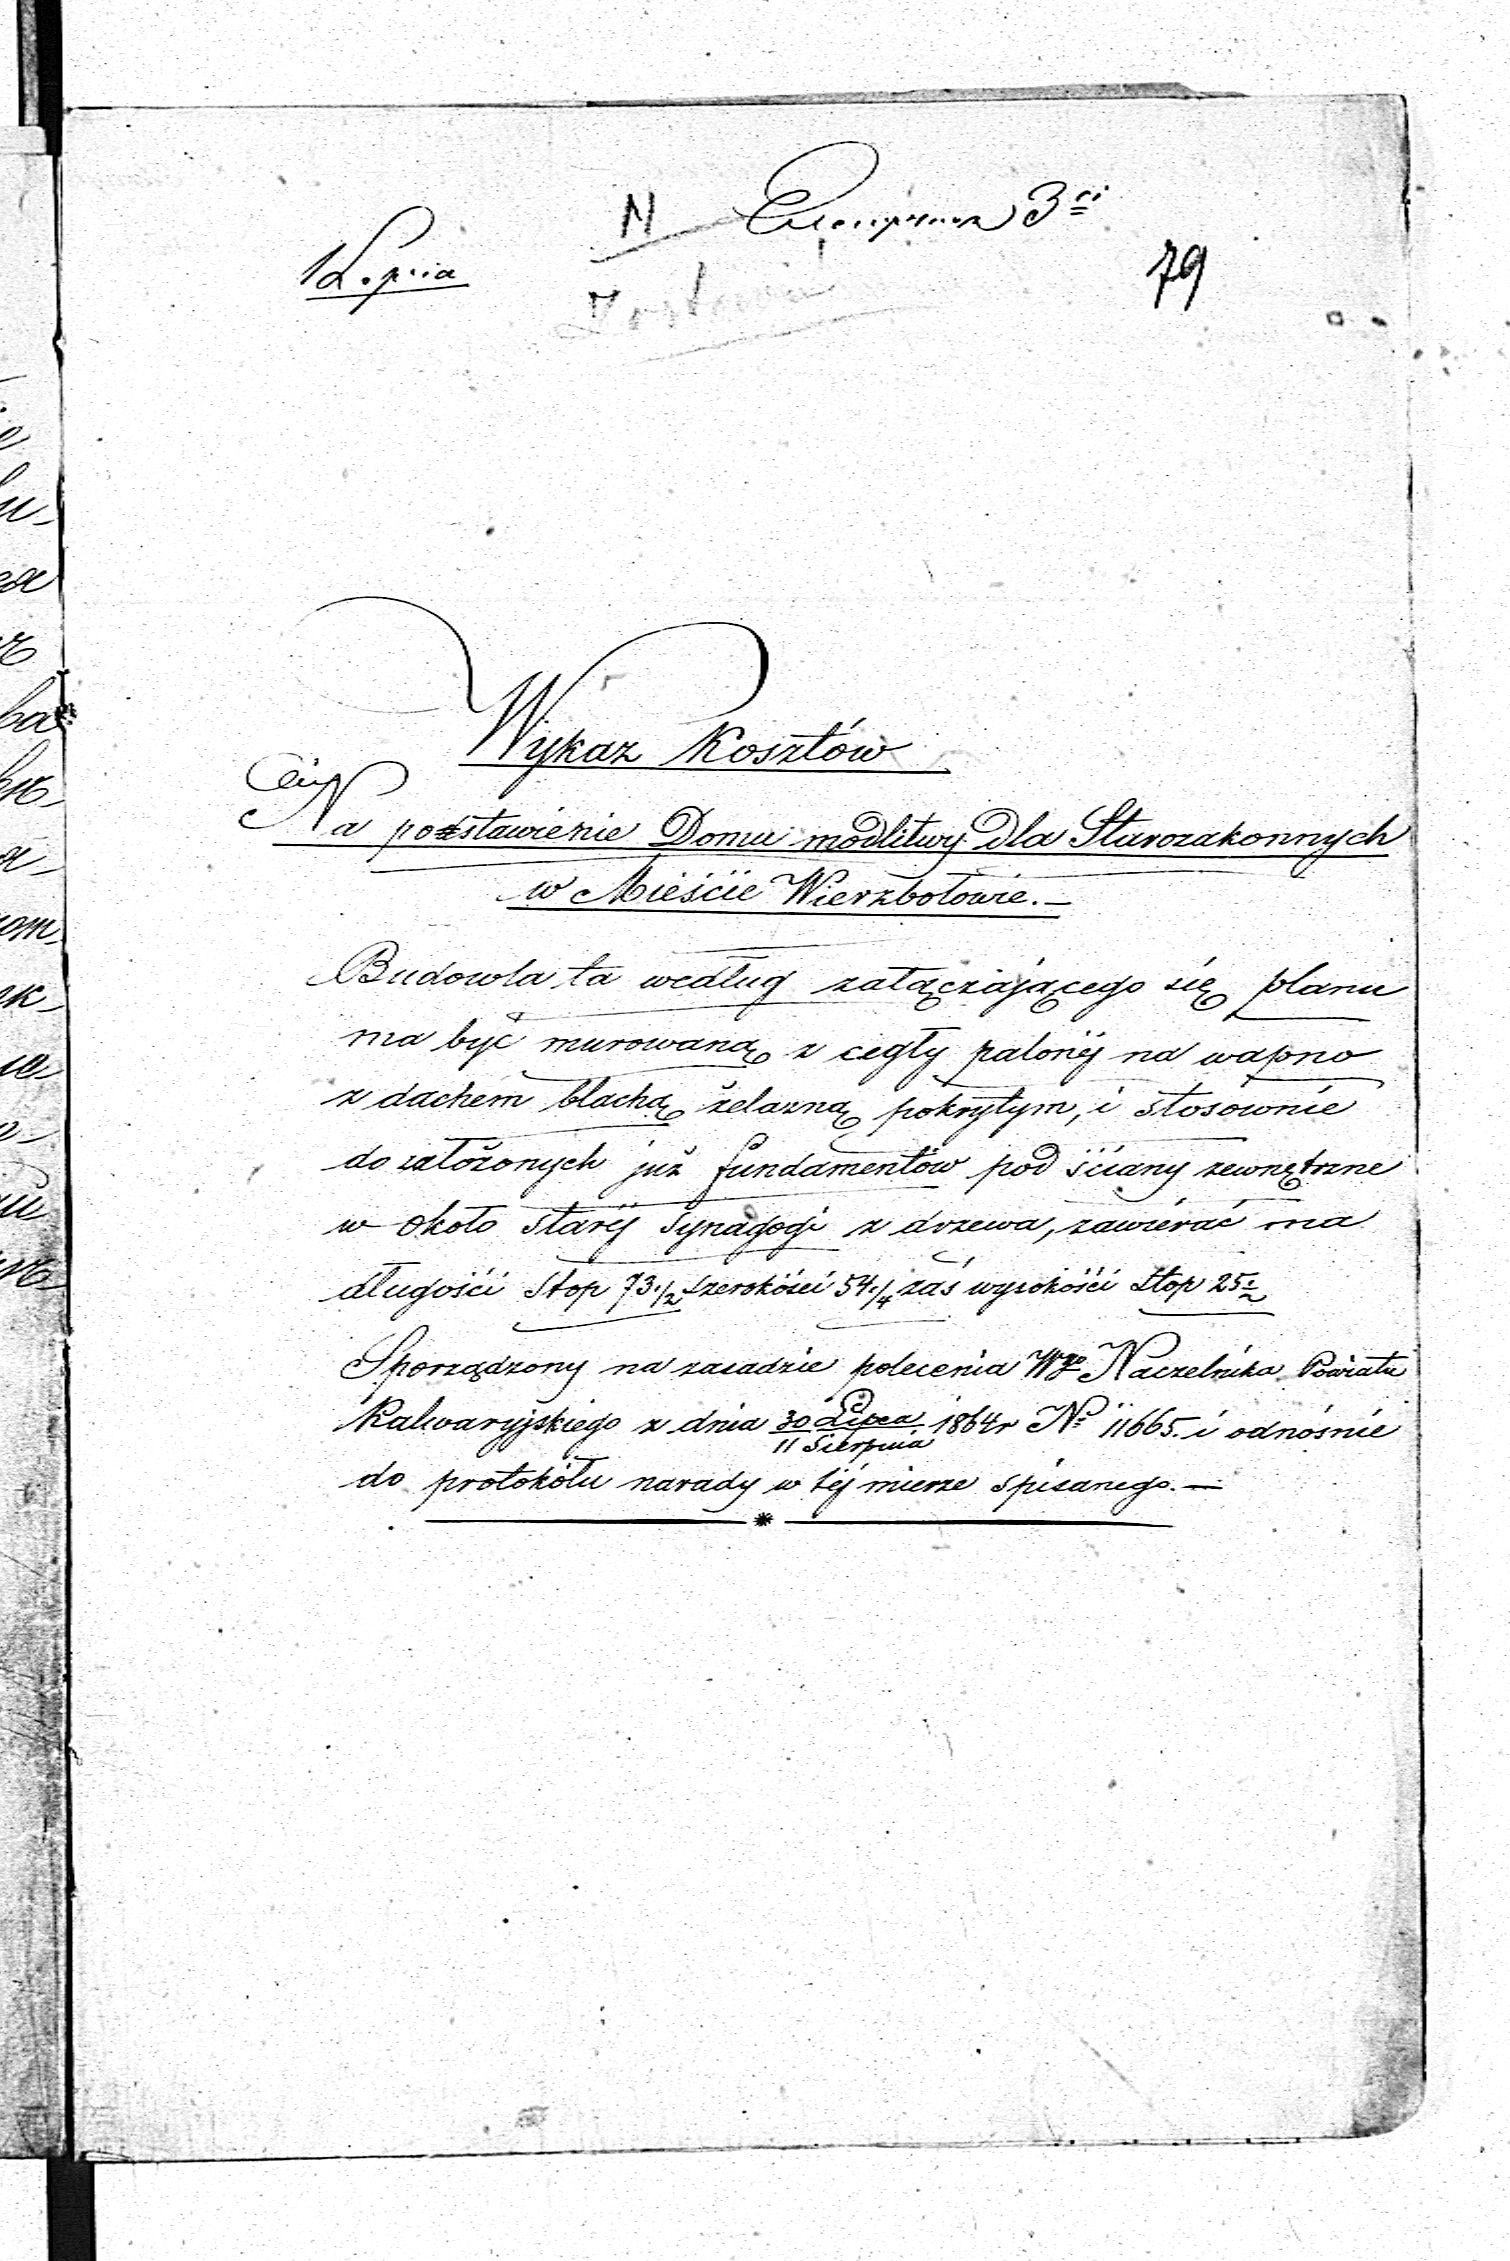 Kopia
N
79
Wykaz Kosztów
Na postawienie Domu modlitwy dla Starozakonnych
w Mieście Wierzbołowie.—
Budowla ta według załączającego się planu
ma być murowaną z cegły palonéj na wapno
z dachem blachą żelazną pokrytym, i stosownie
do założonych już fundamentów pod ściany zewnętrzne
w około staréj synagogi z drzewa, zawierać ma
długości stop 73 1/2 szerokości 54 1/4 zaś wysokości stop 25 1/2
Sporządzony na zasadzie polecenia Wgo Naczelnika Powiatu
Kalwaryjskiego z dnia 30 Lipca / 11 Sierpnia 1864r No 11665. i odnośnie
do protokółu narady w téj mierze spisanego.—